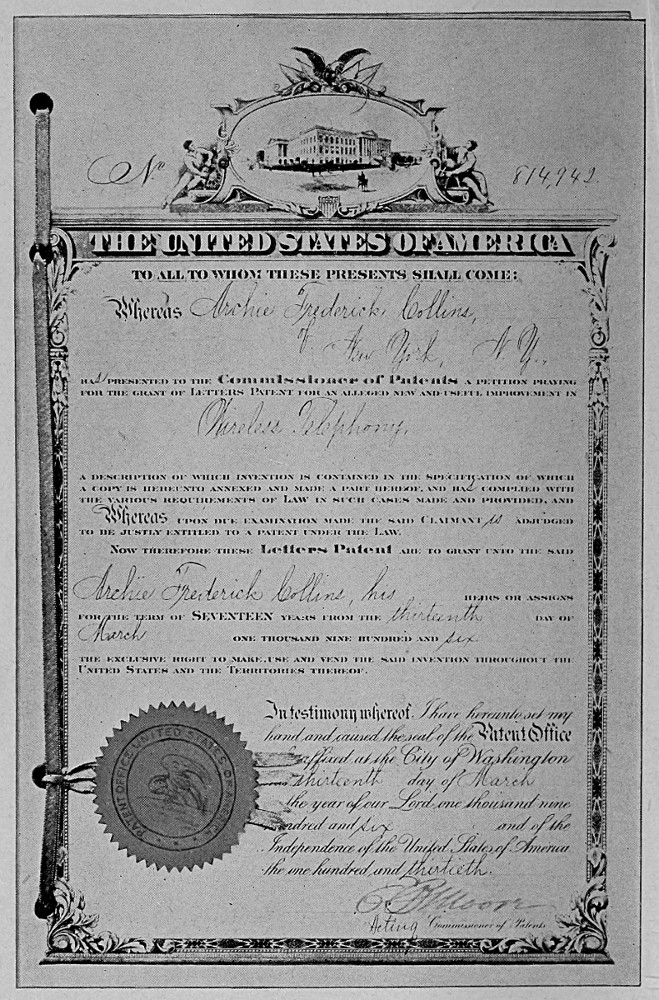 No 814,942.
THE UNITED STATES OF AMERICA
TO ALL TO WHOM THESE PRESENTS SHALL COME:
Whereas Archie Frederick Collins,
of New York, N. Y.,
HAS PRESENTED TO THE Commissioner of Patents A PETITION PRAYING
FOR THE GRANT OF LETTERS PATENT FOR AN ALLEGED NEW AND USEFUL IMPROVEMENT IN
Wireless Telephony,
A DESCRIPTION OF WHICH INVENTION IS CONTAINED IN THE SPECIFICATION OF WHICH
A COPY IS HEREUNTO ANNEXED AND MADE A PART HEREOF, AND HAS COMPLIED WITH
THE VARIOUS REQUIREMENTS OF LAW IN SUCH CASES MADE AND PROVIDED, AND
Whereas UPON DUE EXAMINATION MADE THE SAID CLAIMANT is ADJUDGED
TO BE JUSTLY ENTITLED TO A PATENT UNDER THE LAW.
NOW THEREFORE THESE Letters Patent ARE TO GRANT UNTO THE SAID
Archie Frederick Collins, his HEIRS OR ASSIGNS
FOR THE TERM OF SEVENTEEN YEARS FROM THE thirteenth DAY OF
March ONE THOUSAND NINE HUNDRED AND six
THE EXCLUSIVE RIGHT TO MAKE, USE AND VEND THE SAID INVENTION THROUGHOUT THE
UNITED STATES AND THE TERRITORIES THEREOF.
In testimony whereof I have hereunto set my
hand and caused the seal of the Patent Office
affixed at the City of Washington
thirteenth day of March
the year of our Lord one thousand nine
hundred and six and of the
Independence of the United States of America
the one hundred and thirtieth.
Moore
Acting Commissioner of Patents
PATENT OFFICE UNITED STATES OF AMERICA